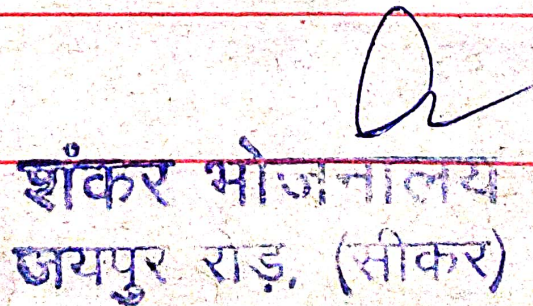 शंकर भोजनालय
जयपुर रोड़, (सीकर)